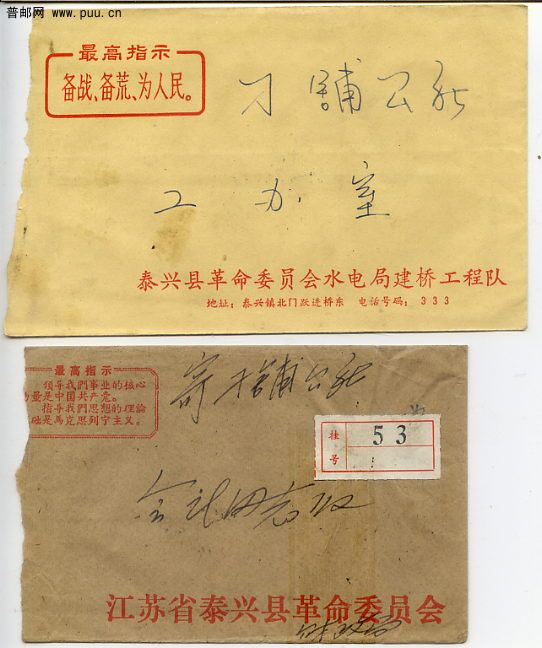 普邮网 www.puu.cn
最高指示
备战、备荒、为人民。
刁铺公社
工办室
泰兴县革命委员会水电局建桥工程队
地址：泰兴镇北门跃进桥东 电话号码：333
最高指示
领导我們事业的核心
力量是中国共产党。
指导我們思想的理論
础是馬克思列宁主义。
寄刁铺公社
挂号
53
会计同志收
江苏省泰兴县革命委员会
财政局